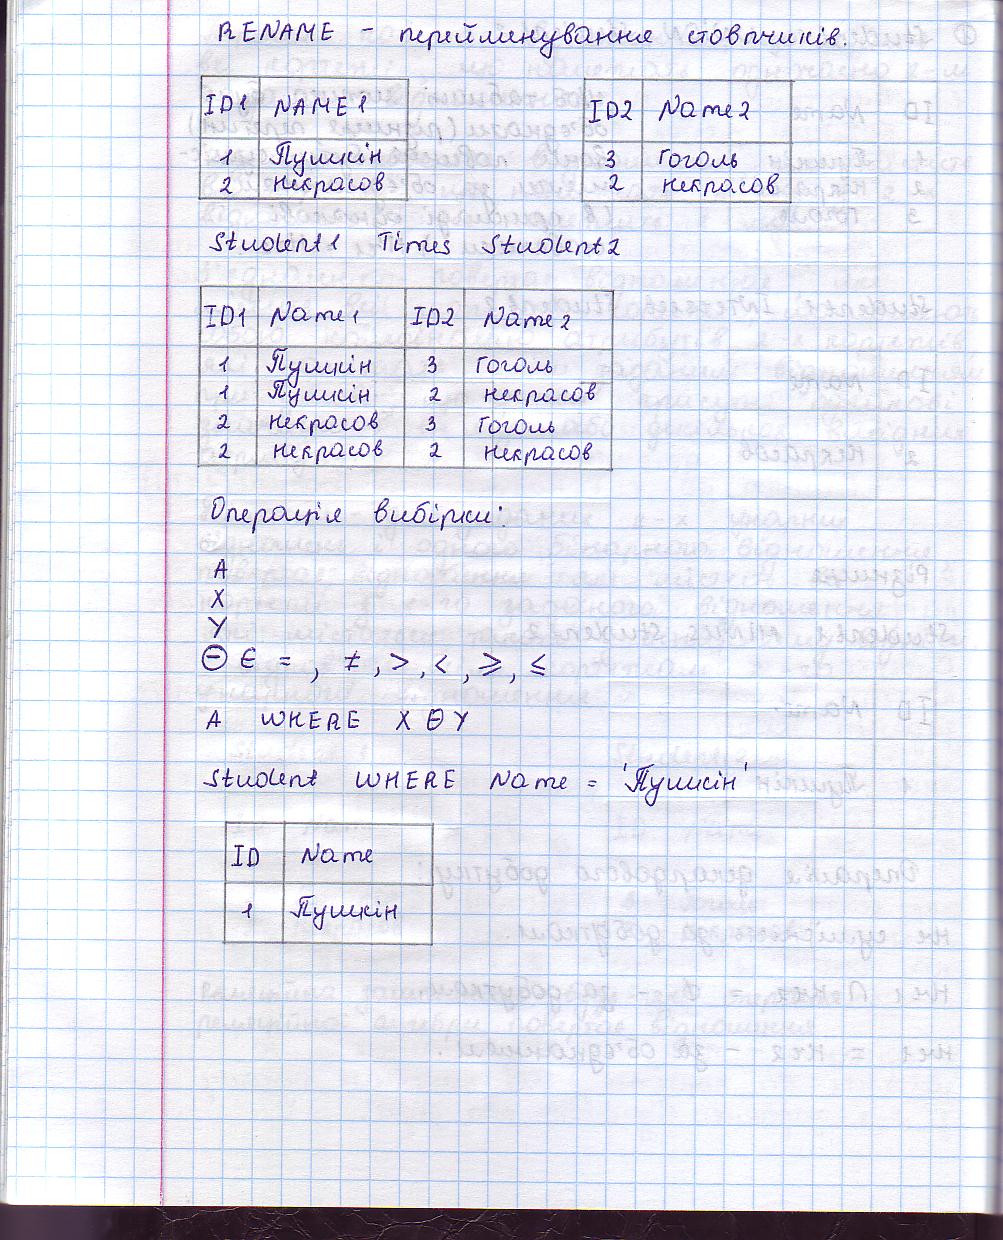 RENAME - перейменування стовпчиків.
ID1 NAME1 ID2 Name2
1 Пушкін 3 Гоголь
2 Некрасов 2 Некрасов
Student1 Times Student2
ID1 Name1 ID2 Name2
1 Пушкін 3 Гоголь
1 Пушкін 2 Некрасов
2 Некрасов 3 Гоголь
2 Некрасов 2 Некрасов
Операція вибірки:
A
X
Y
Θ Є =, ≠, >, <, ⩾, ≤
A WHERE X Θ Y
Student WHERE Name = 'Пушкін'
ID Name
1 Пушкін